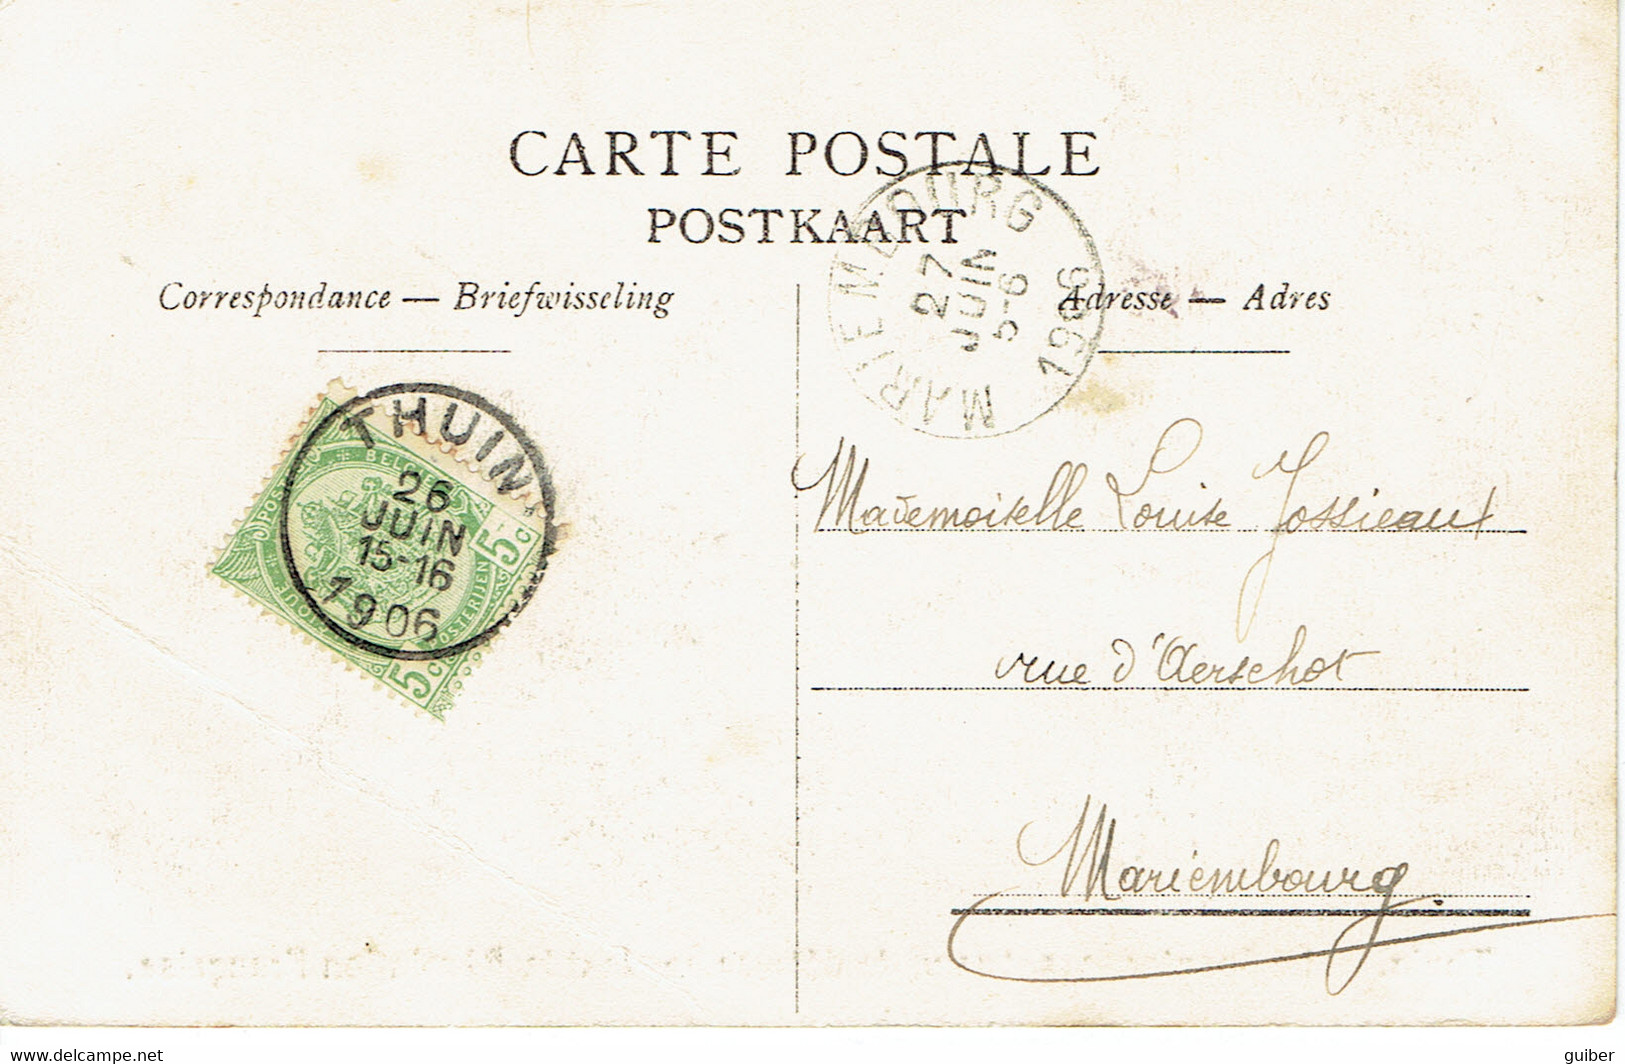 CARTE POSTALE
POSTKAART
Correspondance — Briefwisseling
Adresse — Adres
MARIEMBOURG
27
JUIN
5-6
1906
THUIN
26
JUIN
15-16
1906
5 C
5 C
Mademoiselle Louise Jossieaux
rue d'Aerschot
Mariembourg.
delcampe.net
guiber